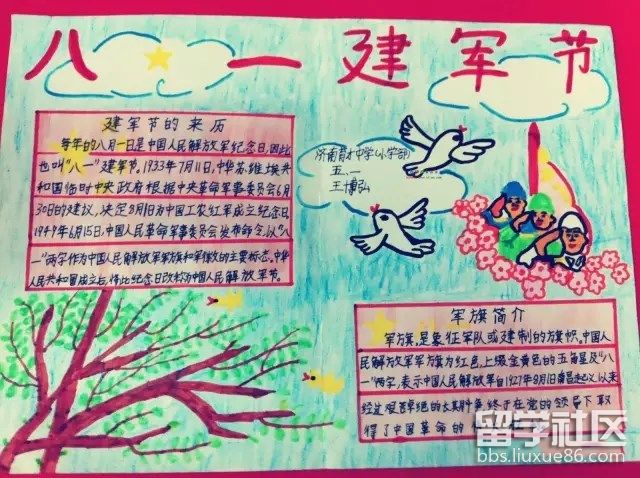 八一建军节
建军节的来历
每年的八月一日是中国人民解放军纪念日,因此
也叫"八一"建军节。1933年7月11日,中华苏维埃共
和国临时中央政府根据中央革命军事委员会6月
30日的建议,决定8月1日为中国工农红军成立纪念日。
1949年6月15日,中国人民革命军事委员会发布命令,以"八
一"两字作为中国人民解放军军旗和军徽的主要标志。中华
人民共和国成立后,将此纪念日改称为中国人民解放军节。
济南育才中学(小学部)
五、一
王博弘
军旗简介
军方旗,是象征军队或建制的方旗帜。中国人
民解放军军旗为红色,上缀金黄色的五角星及"八
一"两字,表示中国人民解放军自1927年8月1日南昌起义以来
经过艰苦卓绝的长期斗争终于在党的领导下取
得了中国革命的
留学社区
bbs.liuxue86.com